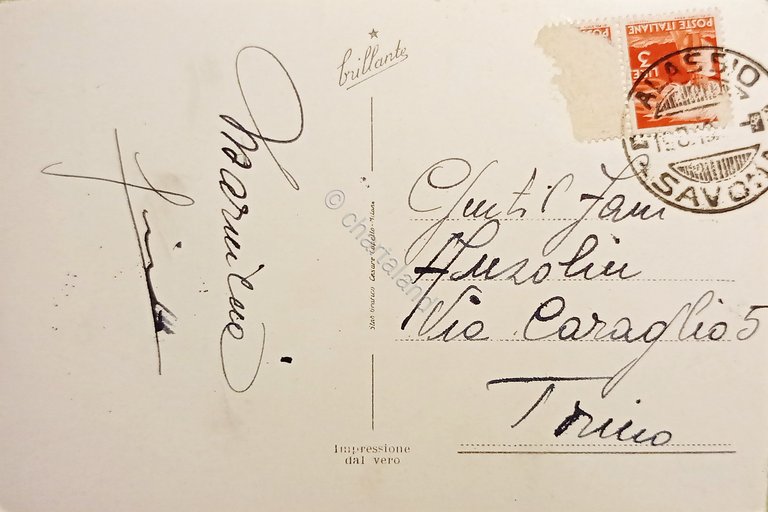 brillante
POSTE ITALIANE
LIRE 3
ALASSIO
SAVONA
Gentil Fam
Anzolin
Via Caraglio 5
Torino
© chartaland
Stab. Grafico Cesare Capello - Milano
Impressione
dal vero